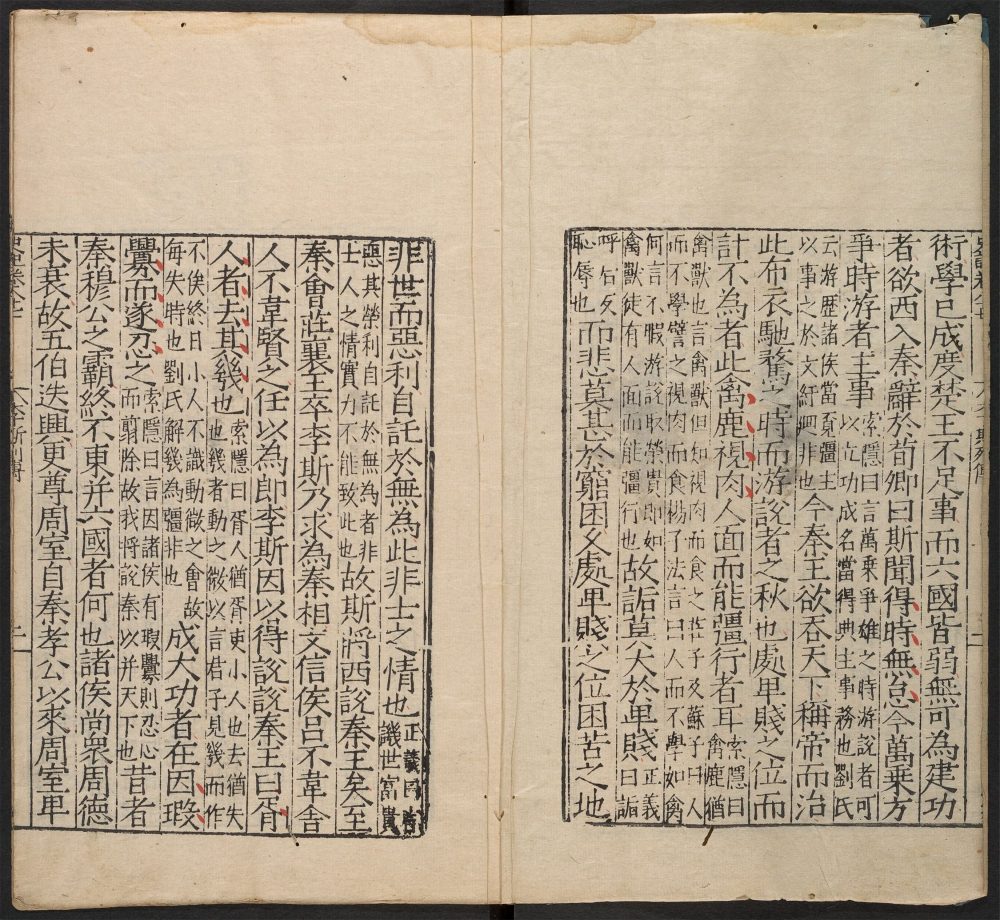 術學已成度楚王不足事而六國皆弱無可為建功
者欲西入秦辭於荀卿曰斯聞得時無怠今萬乘方
爭時游者主事
索隱曰言萬乘爭雄之時游說者可
以立功成名當得典主事務也劉氏
云游歷諸侯當覓彊主
以事之於文紆迴非也
今秦王欲吞天下稱帝而治
此布衣馳騖之時而游說者之秋也處卑賤之位而
計不為者此禽鹿視肉人面而能彊行者耳
索隱曰
禽鹿猶
禽獸也言禽獸但知視肉而食之莊子及蘇子曰人
而不學譬之視肉而食楊子法言曰人而不學如禽
何言不暇游說取榮貴即如
禽獸徒有人面而能彊行也
故詬莫大於卑賤
正義
曰詬
呼后反
恥辱也
而悲莫甚於窮困久處卑賤之位困苦之地
非世而惡利自託於無為此非士之情也
正義曰言
譏世富貴
惡其榮利自託於無為者非
士人之情實力不能致此也
故斯將西說秦王矣至
秦會莊襄王卒李斯乃求為秦相文信侯呂不韋舍
人不韋賢之任以為郎李斯因以得說說秦王曰胥
人者去其幾也
索隱曰胥人猶胥吏小人也去猶失
也幾者動之微以言君子見幾而作
不俟終日小人不識動微之會故
每失時也劉氏解幾為彊非也
成大功者在因瑕
釁而遂忍之
索隱曰言因諸侯有瑕釁則忍心
而翦除故我將說秦以并天下也
昔者
秦穆公之霸終不東并六國者何也諸侯尚眾周德
未衰故五伯迭興更尊周室自秦孝公以來周室卑